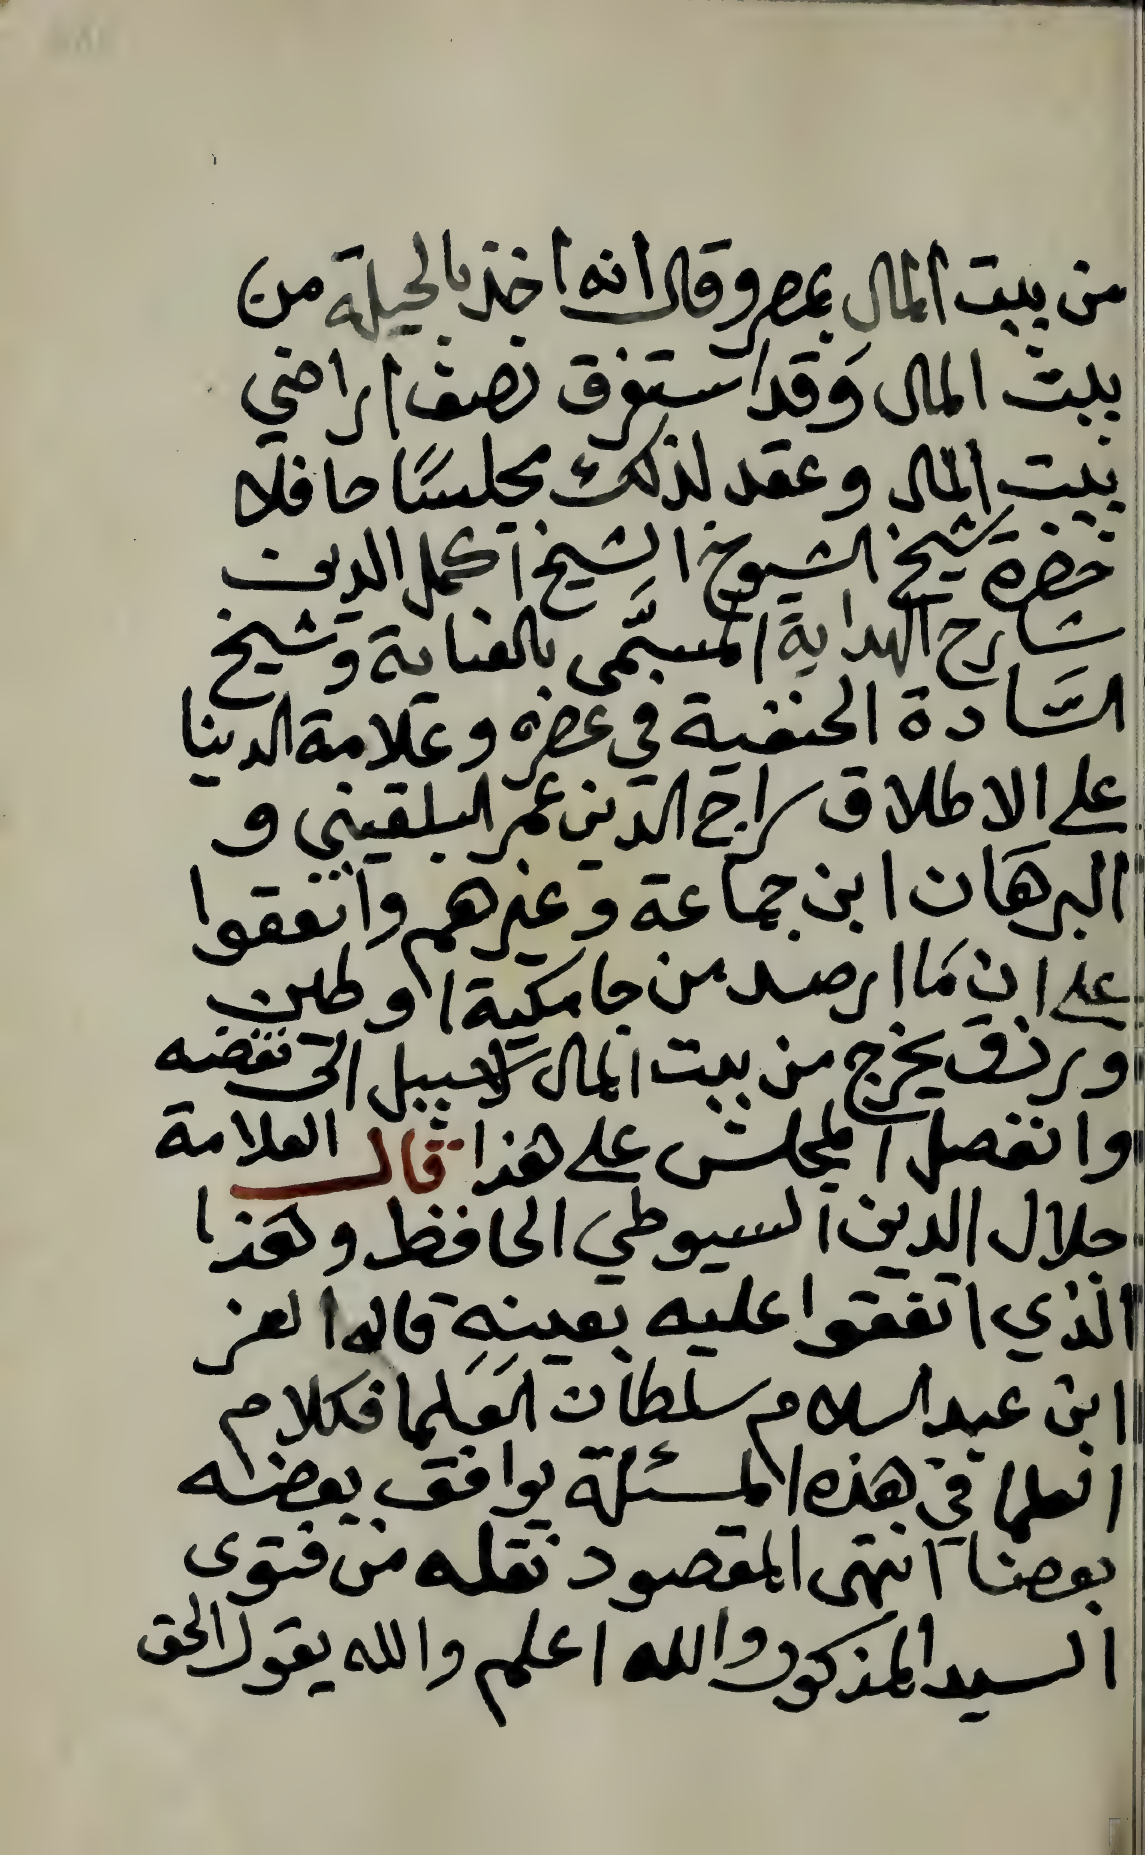 من بيت المال بمصر وقال انه اخذ بالحيلة من
بيت المال وَقد استغرق نصف اراضي
بيت المال وعقد لذلك مجلسًا حافلا
حضره شيخ الشيوخ الشيخ اكمل الدين
شارح الهداية المسَمّى بالعناية وشيخ
السَّادة الحنفية في عصره وعلامة الدينا
على الاطلاق سراج الدين عمر البلقيني و
البرهَان ابن جماعة وغيرهم واتفقوا
على ان مَا ارصد من جامكية او طين
ورزق يخرج من بيت المال لاسبيل الى نقضه
وانفصل المجلس على هذا قال العلامة
جلال الدين السيوطي الحافظ وهذا
الذي اتفقوا عليه بعينهِ قاله العز
ابن عبد السلام سلطان العَلما فكلام
العلما في هذه المسئلة يوافق بعضه
بعضا انتهى المقصود نقله من فتوى
السيد المذكور والله اعلم والله يقول الحق